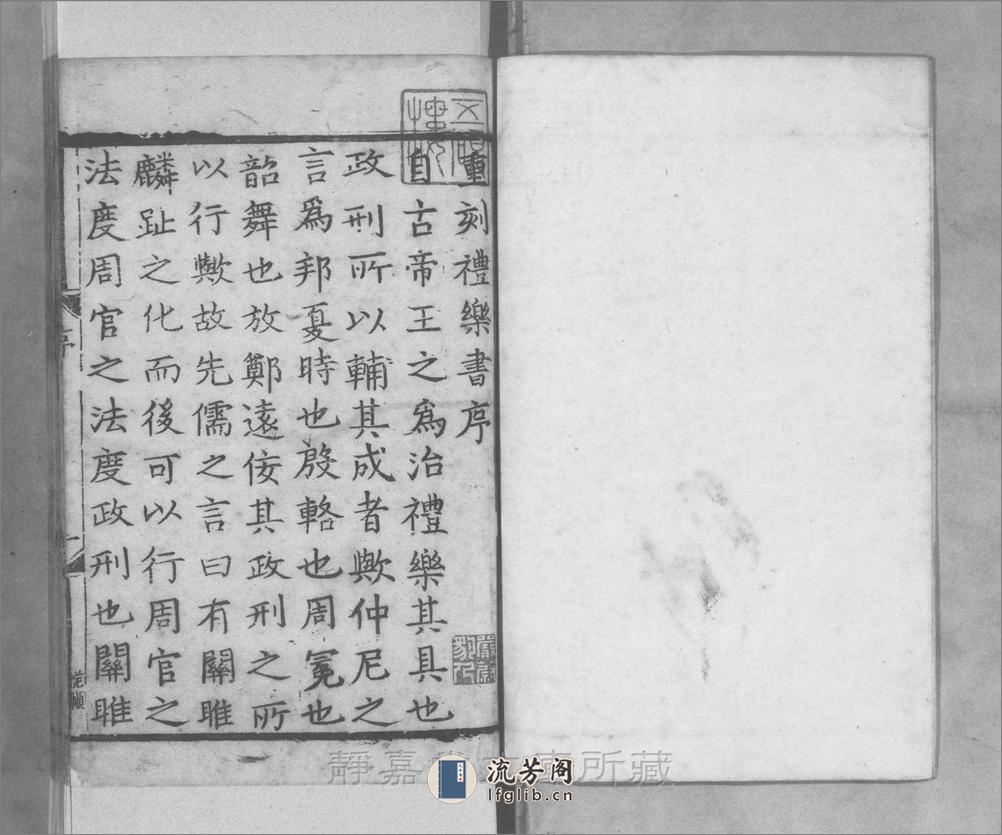 重刻禮樂書序
自古帝王之爲治禮樂其具也
政刑所以輔其成者歟仲尼之
言爲邦夏時也殷輅也周冕也
韶舞也放鄭遠佞其政刑之所
以行歟故先儒之言曰有關雎
麟趾之化而後可以行周官之
法度周官之法度政刑也關雎
序
一
靜嘉堂文庫所藏
流芳阁
lfglib.cn